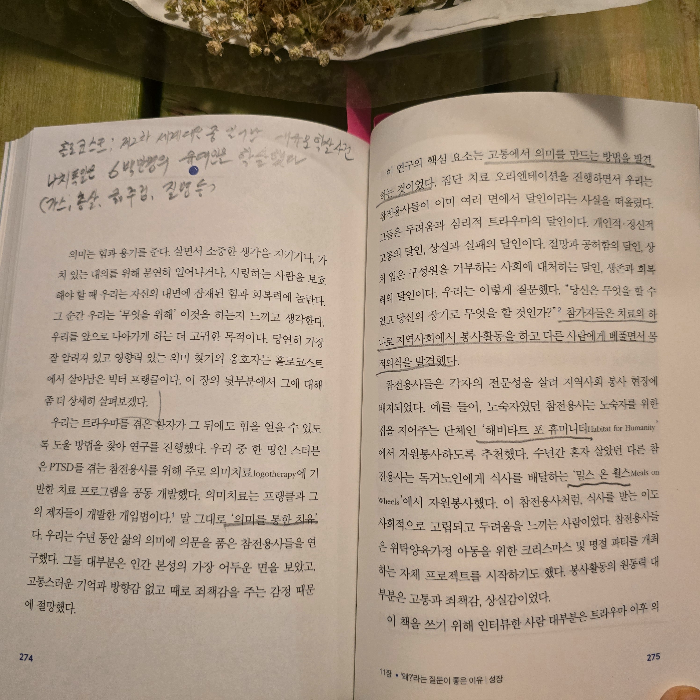 홀로코스트: 제2차 세계대전 중
나치독일은 6백만명의 유대인을 학살했다
(가스, 총살, 굶주림, 질병 등)
의미는 힘과 용기를 준다. 살면서 소중한 생각을 지키거나, 가
치 있는 대의를 위해 분연히 일어나거나, 사랑하는 사람을 보호
해야 할 때 우리는 자신의 내면에 잠재된 힘과 회복력에 놀란다.
그 순간 우리는 '무엇을 위해' 이것을 하는지 느끼고 생각한다.
우리를 앞으로 나아가게 하는 더 고귀한 목적이다. 당연히 가장
잘 알려져 있고 영향력 있는 의미 찾기의 옹호자는 홀로코스트
에서 살아남은 빅터 프랭클이다. 이 장의 뒷부분에서 그에 대해
좀 더 상세히 살펴보겠다.
우리는 트라우마를 겪은 환자가 그 뒤에도 힘을 얻을 수 있도
록 도울 방법을 찾아 연구를 진행했다. 우리 중 한 명인 스티븐
은 PTSD를 겪는 참전용사를 위해 주로 의미치료logotherapy에 기
반한 치료 프로그램을 공동 개발했다. 의미치료는 프랭클과 그
의 제자들이 개발한 개입법이다.¹ 말 그대로 '의미를 통한 치유'
다. 우리는 수년 동안 삶의 의미에 의문을 품은 참전용사들을 연
구했다. 그들 대부분은 인간 본성의 가장 어두운 면을 보았고,
고통스러운 기억과 방향감 없고 때로 죄책감을 주는 감정 때문
에 절망했다.
274
이 연구의 핵심 요소는 고통에서 의미를 만드는 방법을 발견
하는 것이었다. 집단 치료 오리엔테이션을 진행하면서 우리는
참전용사들이 이미 여러 면에서 달인이라는 사실을 떠올렸다.
그들은 두려움과 심리적 트라우마의 달인이다. 개인적·정신적
고통의 달인, 상실과 실패의 달인이다. 절망과 공허함의 달인, 상
처 입은 구성원을 기부하는 사회에 대처하는 달인, 생존과 회복
력의 달인이다. 우리는 이렇게 질문했다. "당신은 무엇을 할 수
있고 당신의 장기로 무엇을 할 것인가?" 참가자들은 치료의 하
나로 지역사회에서 봉사활동을 하고 다른 사람에게 베풀면서 목
적의식을 발견했다.
참전용사들은 각자의 전문성을 살려 지역사회 봉사 현장에
배치되었다. 예를 들어, 노숙자였던 참전용사는 노숙자를 위한
집을 지어주는 단체인 '해비타트 포 휴머니티Habitat for Humanity'
에서 자원봉사하도록 추천했다. 수년간 혼자 살았던 다른 참
전용사는 독거노인에게 식사를 배달하는 '밀스 온 휠스Meals on
Wheels'에서 자원봉사했다. 이 참전용사처럼, 식사를 받는 이도
사회적으로 고립되고 두려움을 느끼는 사람이었다. 참전용사들
은 위탁양육가정 아동을 위한 크리스마스 및 명절 파티를 개최
하는 자체 프로젝트를 시작하기도 했다. 봉사활동의 원동력 대
부분은 고통과 죄책감, 상실감이었다.
이 책을 쓰기 위해 인터뷰한 사람 대부분은 트라우마 이후 의
11장 • '왜?'라는 질문이 좋은 이유 | 성장
275